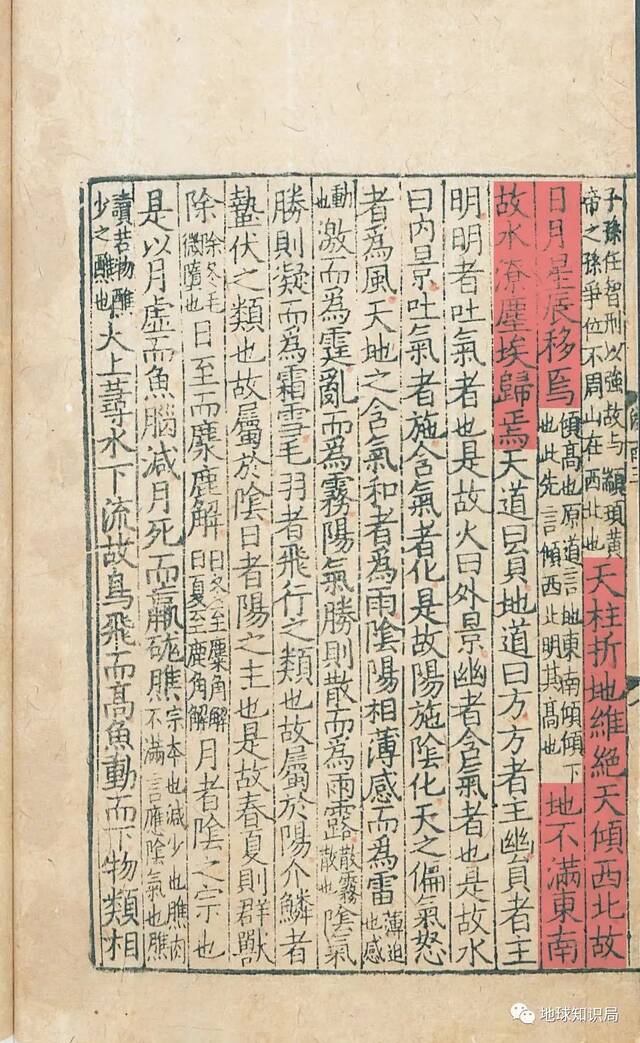 子孫任智刑以強故与顓頊黄帝之孫爭位不周山在西北也天柱折地維絶天傾西北故
日月星辰移焉傾髙也原道言地東南傾傾下也此先言傾西北明其髙也地不滿東南
故水潦塵埃歸焉天道曰貟地道曰方方者主幽貟者主
明明者吐氣者也是故火曰外景幽者含氣者也是故水
曰内景吐氣者施含氣者化是故陽施陰化天之偏氣怒
者爲風天地之含氣和者爲雨陰陽相薄感而爲雷薄迫也感
動也激而爲霆亂而爲霧陽氣勝則散而爲雨露散霧散也陰氣
勝則凝而爲霜雪毛羽者飛行之類也故屬於陽介鱗者
蟄伏之類也故屬於陰日者陽之主也是故春夏則群獸
除除冬毛微墮也日至而麋鹿解日冬至麋角解日夏至鹿角解月者陰之宗也
是以月虚而魚腦減月死而蠃硥膲宗本也減少也膲肉不滿言應陰氣也膲
讀若物醮少之醮也火上蕁水下流故鳥飛而髙魚動而下物類相
地球知识局